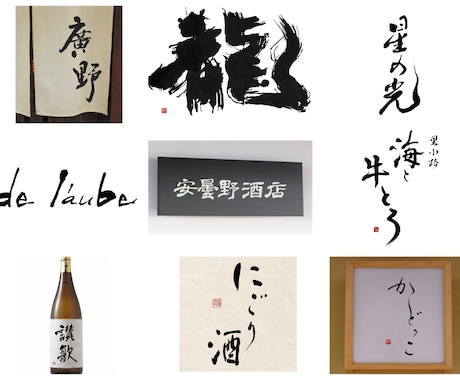 廣野
龍
星の光
de l'aube
安曇野酒店
里小路
海と
牛とろ
讃歌
にごり
酒
かどっこ